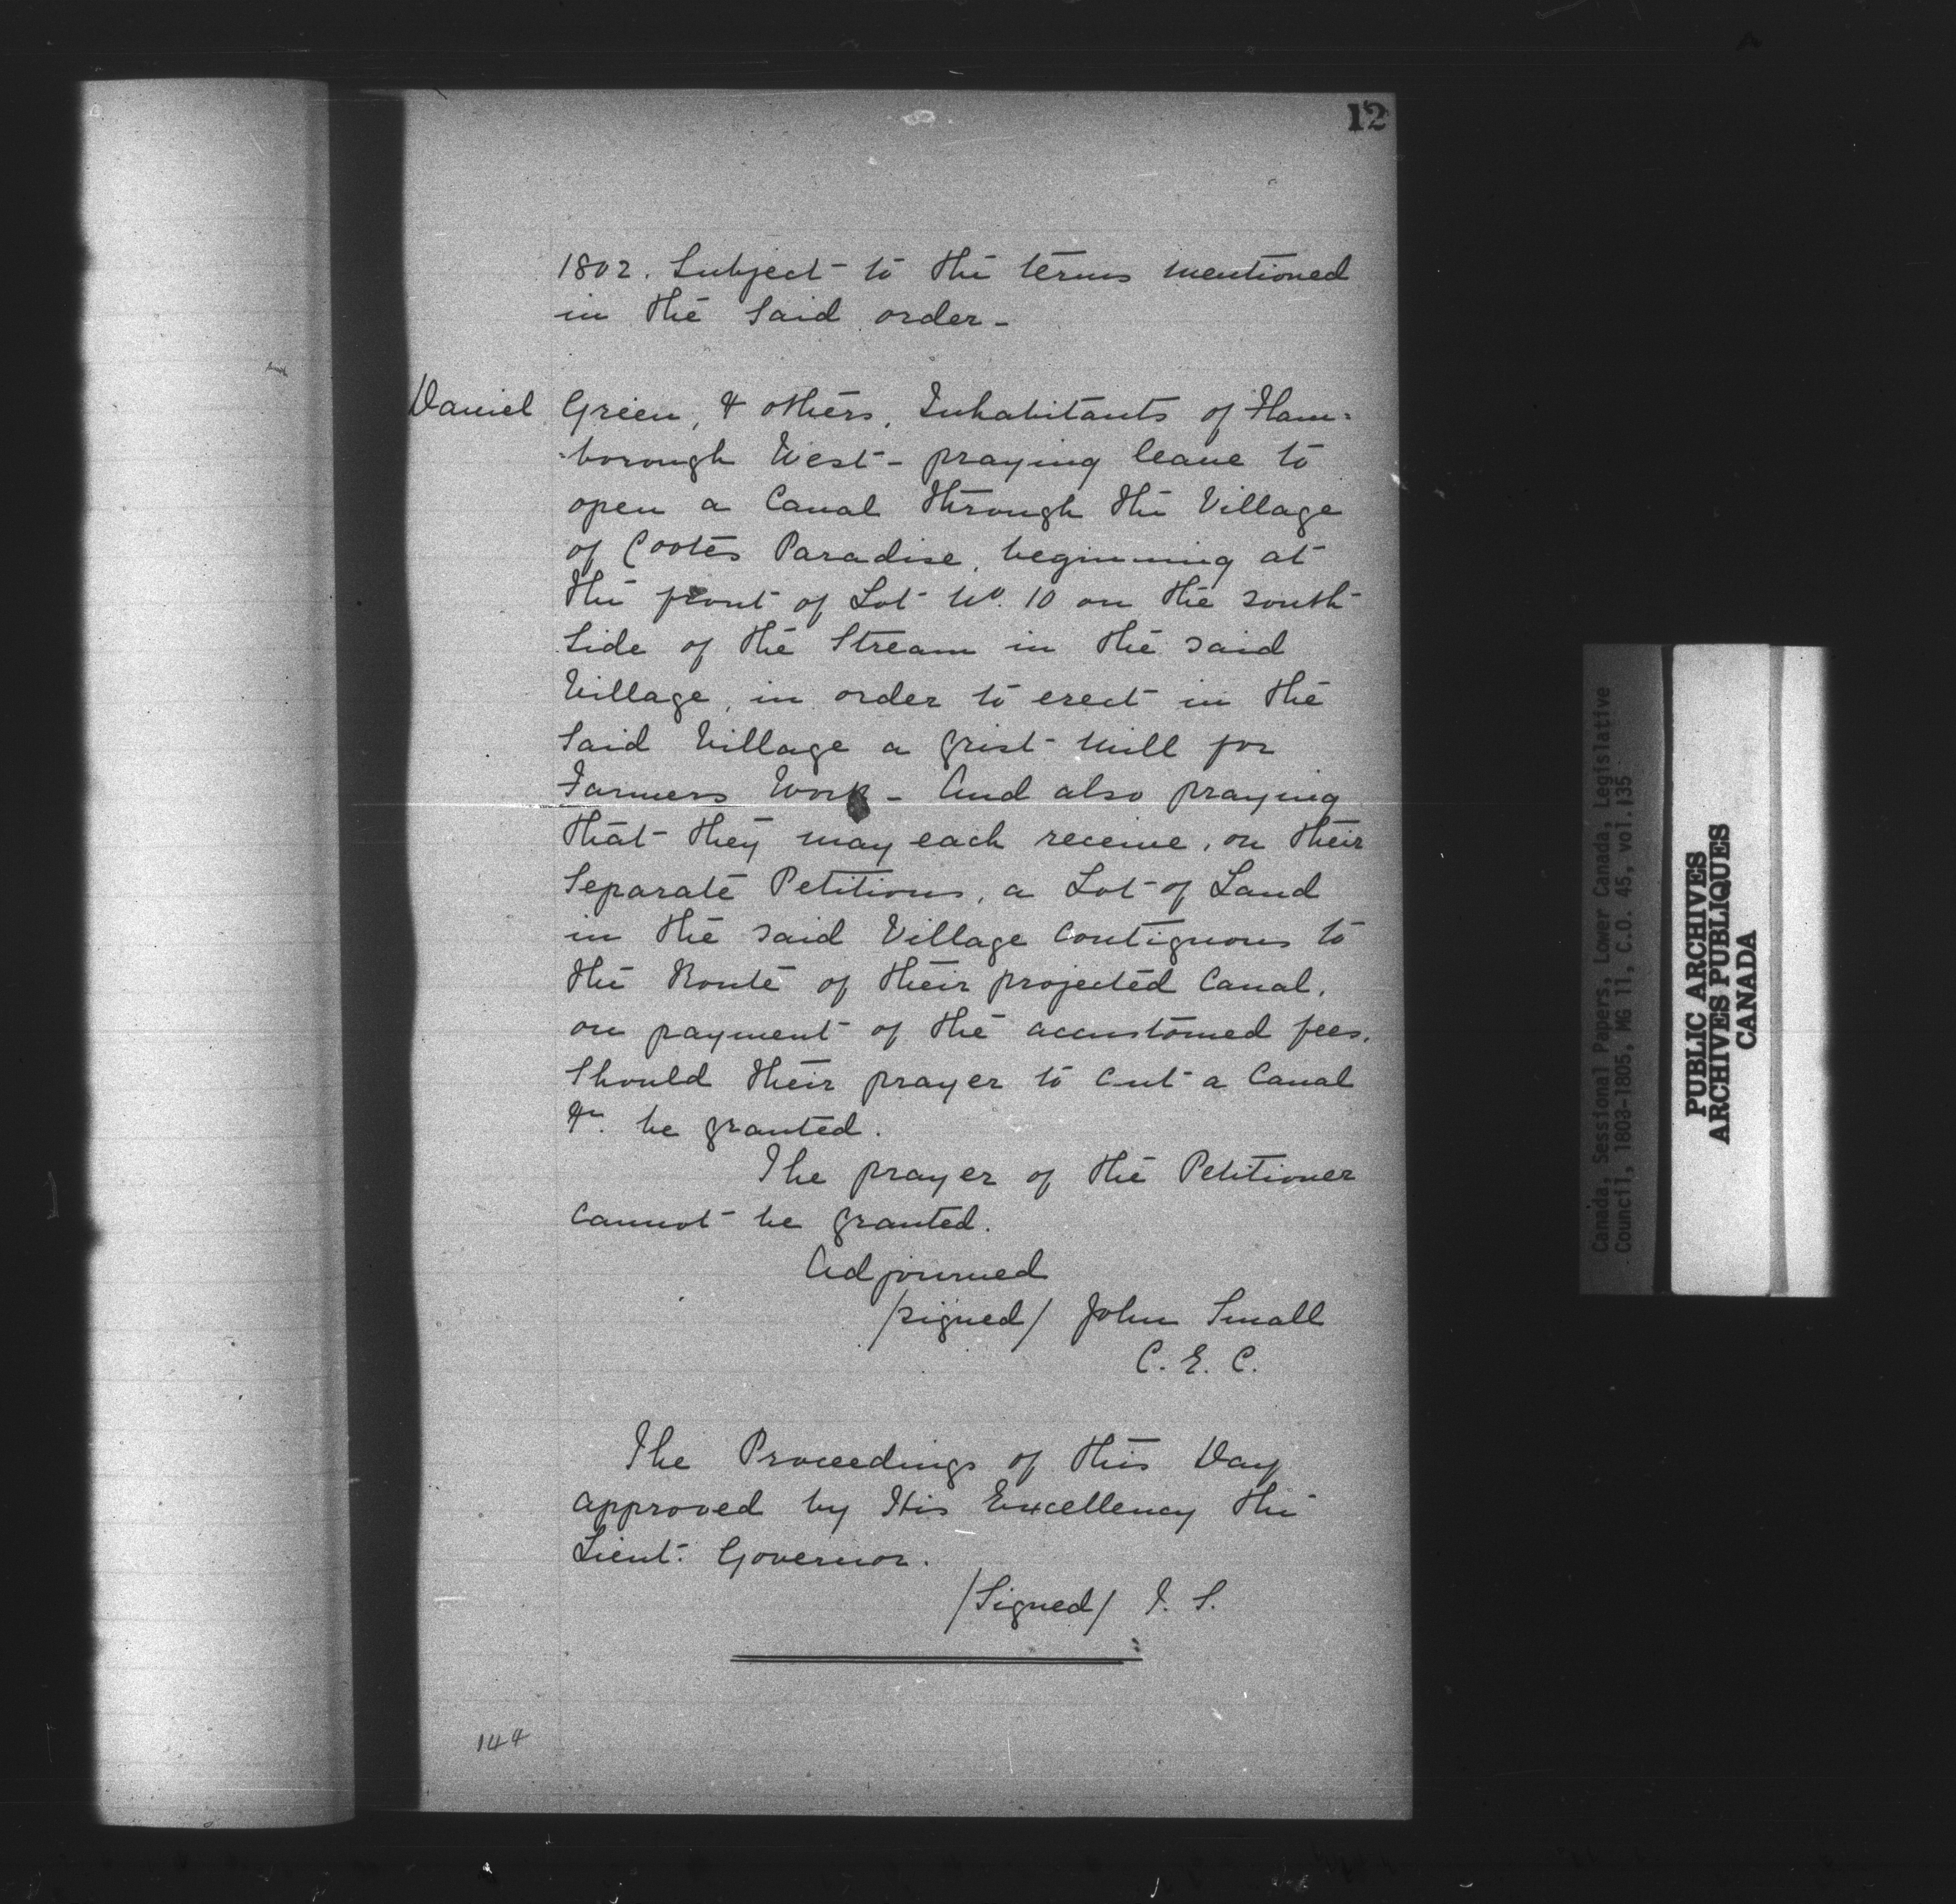 12
1802. Subject to the terms mentioned
in the said order -
Daniel Green, & others, Inhabitants of Flam=
=borough West - praying leave to
open a Canal through the Village
of Cootes Paradise, beginning at
the front of Lot No. 10 on the south
side of the Stream in the said
Village, in order to erect in the
said Village a grist Mill for
Farmers Work - And also praying
that they may each receive, on their
separate Petitions, a Lot of Land
in the said Village contiguous to
the Route of their projected Canal,
on payment of the accustomed fees,
should their prayer to cut a Canal
&c. be granted.
The prayer of the Petitioner
cannot be granted.
Adjourned
/signed/ John Small
C. E. C.
The Proceedings of this Day
approved by His Excellency the
Lieut. Governor.
/Signed/ J. S.
144
Canada, Sessional Papers, Lower Canada, Legislative
Council, 1808-1805, MG 11, C.O. 45, vol.135
PUBLIC ARCHIVES
ARCHIVES PUBLIQUES
CANADA